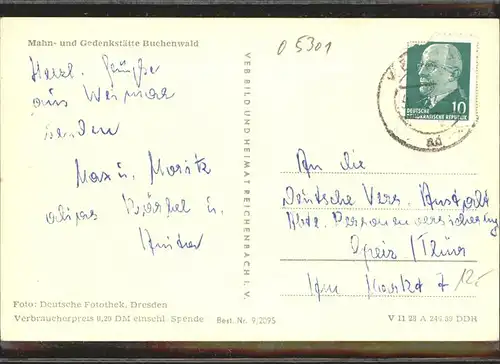 Mahn- und Gedenkstätte Buchenwald
Herzl. Grüße
aus Weimar
senden
Max u. Moritz
u.
Kinder
VEB BILD UND HEIMAT REICHENBACH I. V.
05301
10
DEUTSCHE
DEMOKRATISCHE REPUBLIK
An die
Deutsche Vers. Anstalt
Abt. Personenversicherung
Greiz /Thür
Am Markt 7
12.-
Foto: Deutsche Fotothek, Dresden
Verbraucherpreis 0,20 DM einschl. Spende
Best. Nr. 9/2095
V 11 28 A 246 60 DDR